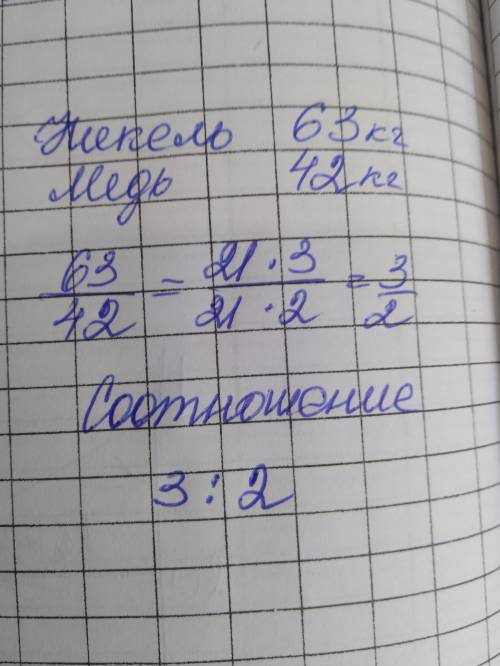 Никель 63кг
Медь 42кг
63/42 = 21·3/21·2 = 3/2
Соотношение
3 : 2